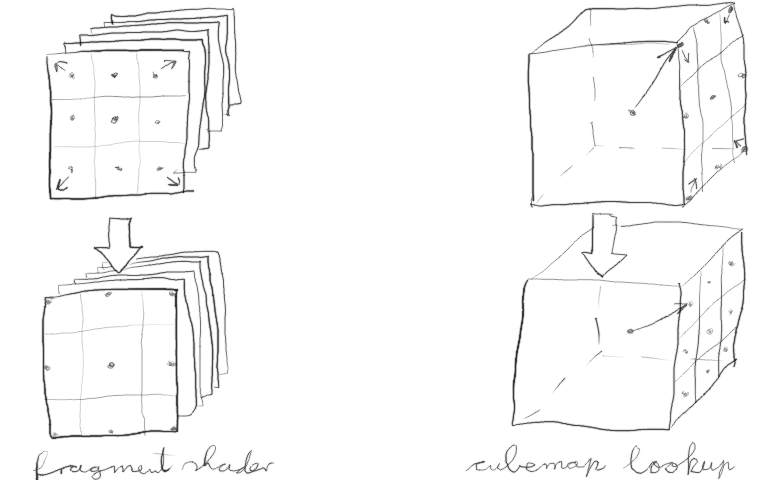 fragment shader
cubemap lookup